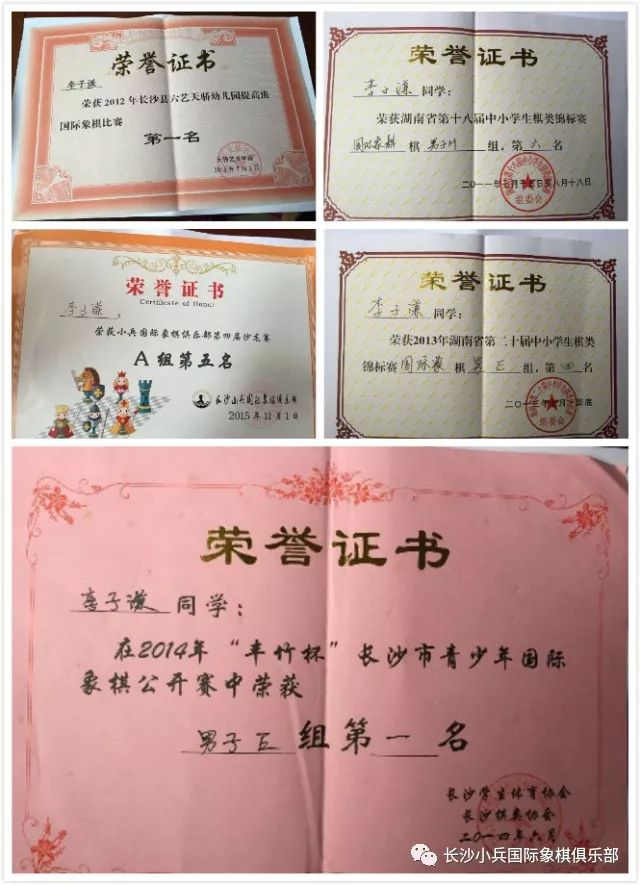 荣誉证书
李子谦
荣获2012年长沙县六艺天骄幼儿园提高班
国际象棋比赛
第一名
荣誉证书
李子谦同学：
荣获湖南省第十八届中小学生棋类锦标赛
国际象棋 棋 男子 组，第 六 名
组委会
荣誉证书
Certificate of Honor
李子谦：
荣获小兵国际象棋俱乐部第四届沙龙赛
A组第五名
长沙小兵国际象棋俱乐部
2015年11月1日
荣誉证书
李子谦 同学：
荣获2013年湖南省第二十届中小学生棋类
锦标赛 国际象 棋 男 E 组，第 四 名
组委会
荣誉证书
李子谦 同学：
在2014年“丰竹杯”长沙市青少年国际
象棋公开赛中荣获
男子E 组第 一 名
长沙学生体育协会
长沙棋类协会
二〇一四年六月
长沙小兵国际象棋俱乐部